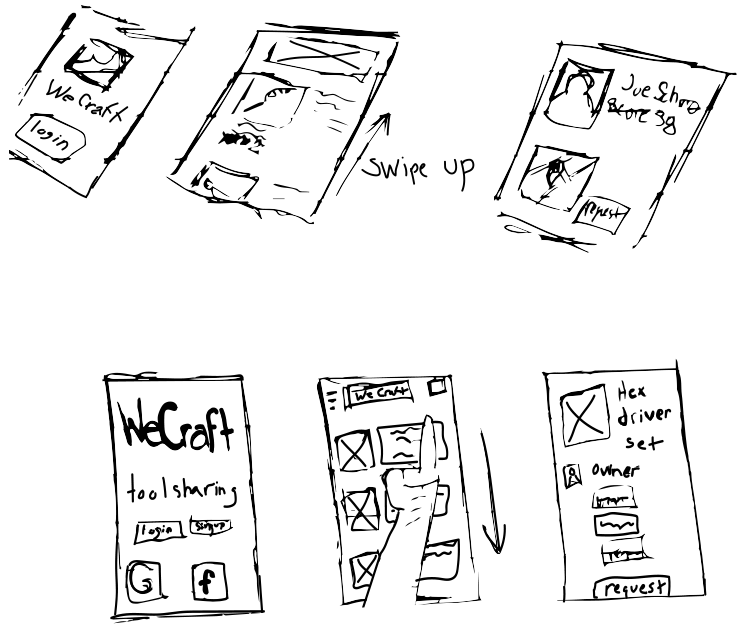 WeCraft
login
swipe up
request
WeCraft
toolsharing
login
signup
G
f
WeCraft
Hex
driver
set
owner
request